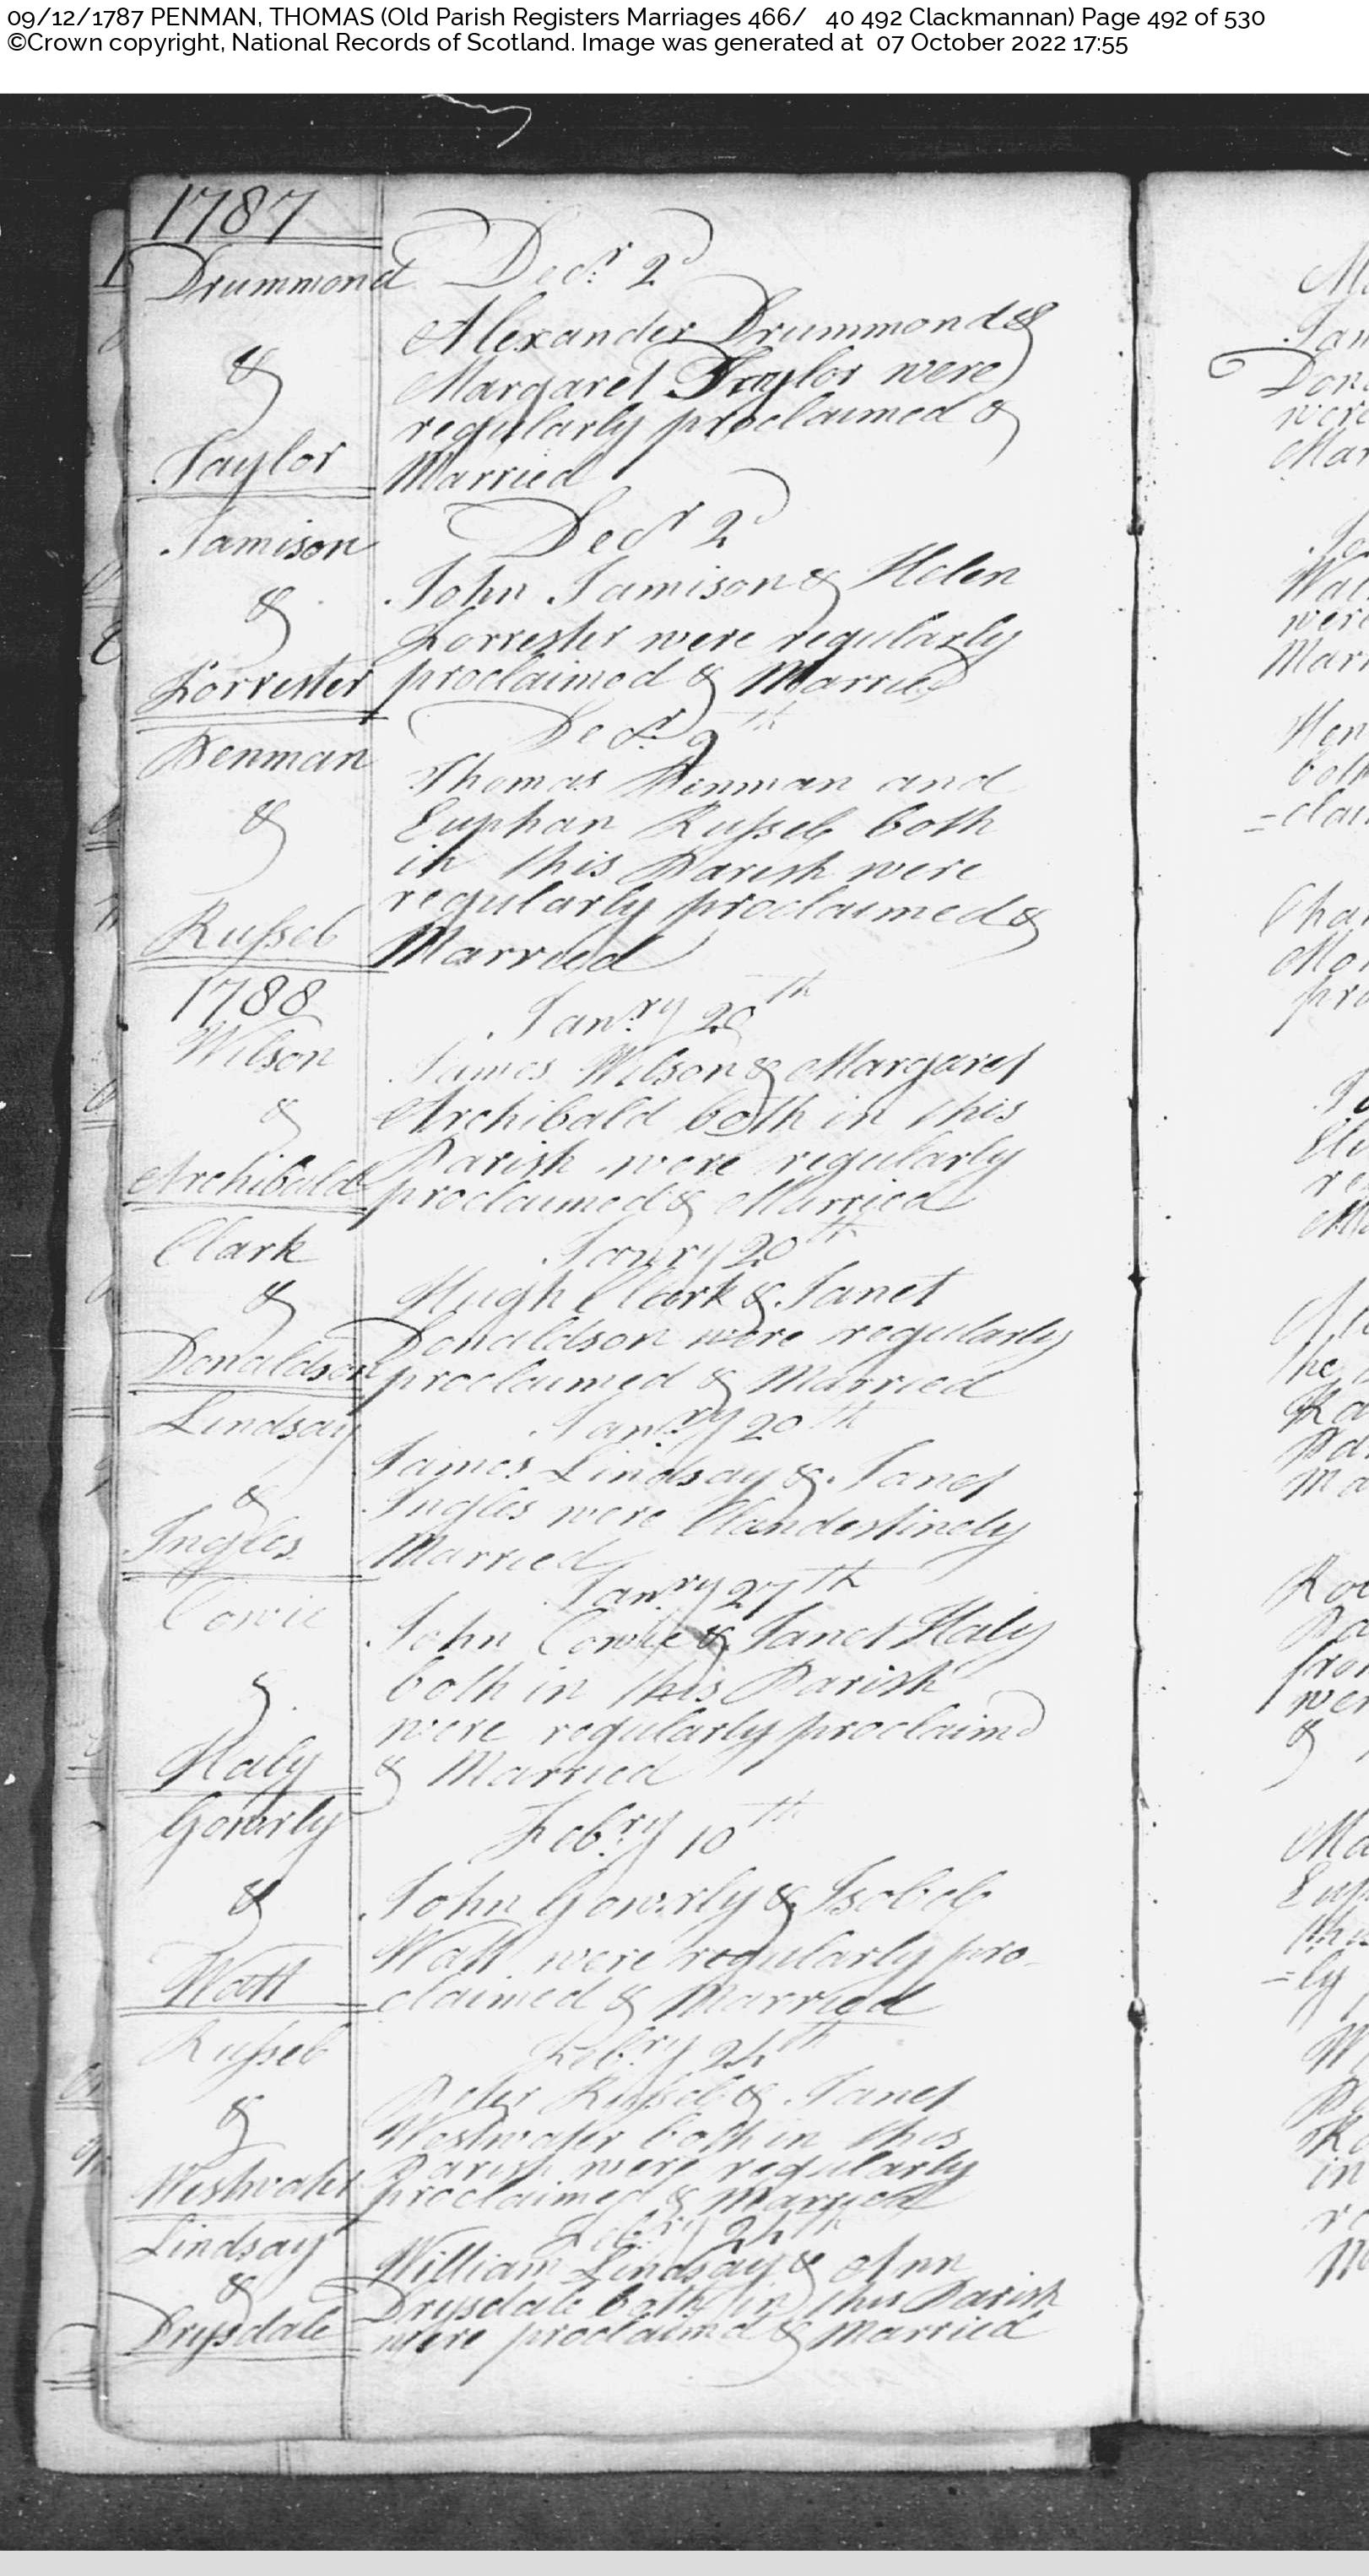 09/12/1787 PENMAN, THOMAS (Old Parish Registers Marriages 466/ 40 492 Clackmannan) Page 492 of 530
©Crown copyright, National Records of Scotland. Image was generated at 07 October 2022 17:55
1787
Drummond
&
Taylor
Decr. 2d
Alexander Drummond &
Margaret Taylor were
regularly proclaimed &
Married
Jamison
&
Forrester
Decr 2d
John Jamison & Helen
Forrester were regularly
proclaimed & Married
Penman
&
Russel
Decr. 9th
Thomas Penman and
Euphan Russel both
in this Parish were
regularly proclaimed &
Married
1788
Wilson
&
Archibald
Janry 20th
James Wilson & Margaret
Archibald both in this
Parish were regularly
proclaimed & Married
Clark
&
Donaldson
Janry 20th
Hugh Clark & Janet
Donaldson were regularly
proclaimed & Married
Lindsay
&
Ingles
Janry 20th
James Lindsay & Janet
Ingles were Clandestinely
Married
Cowie
&
Haly
Janry 27th
John Cowie & Janet Haly
both in this Parish
were regularly proclaimd
& Married
Gowrly
&
Watt
Febry 10th
John Gowrly & Isobel
Watt were regularly pro
claimed & Married
Russel
&
Westwater
Febry 24th
Peter Russel & Janet
Westwater both in this
Parish were regularly
proclaimed & Married
Lindsay
&
Drysdale
Febry 24th
William Lindsay & Ann
Drysdale both in this Parish
were proclaimd & Married